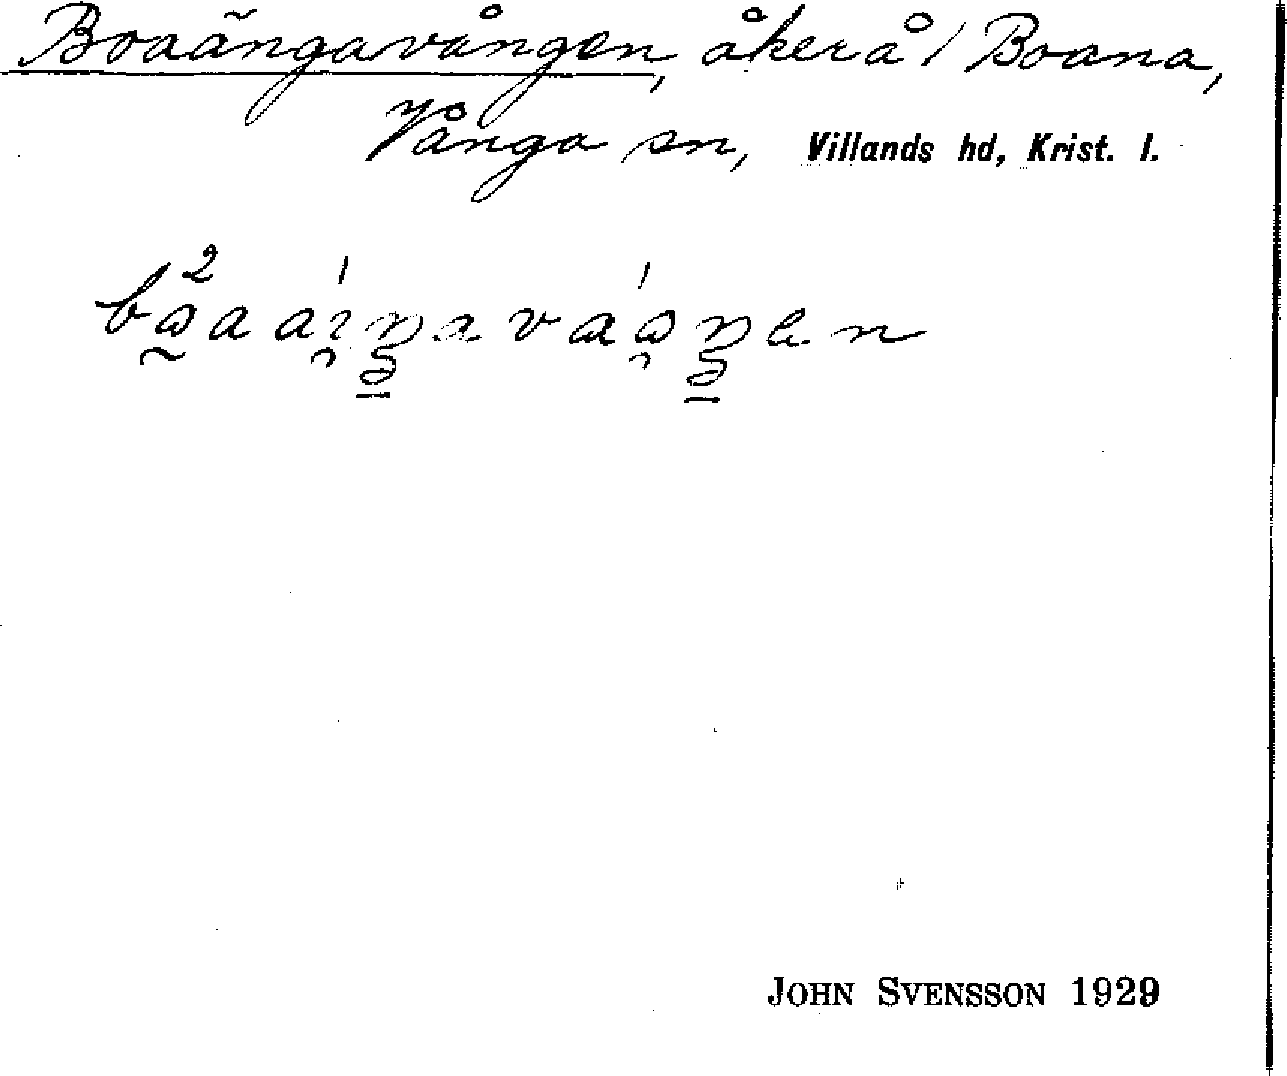 Boaängavången, åker å / Boana,
Vånga sn, Villands hd, Krist. l.
JOHN SVENSSON 1929